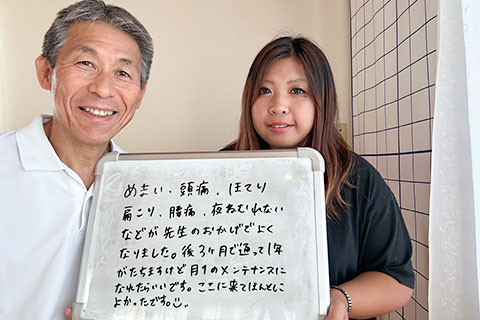 めまい、頭痛、ほてり
肩こり、腰痛、夜ねむれない
などが先生のおかげでよく
なりました。後3ヶ月で通って1年
がたちますけど月1のメンテナンスに
なれたらいいです。ここに来てほんとに
よかったです。